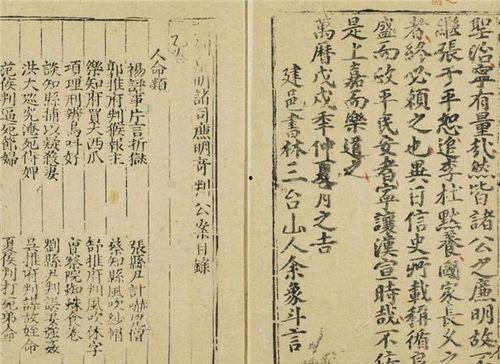 聖治寧有量哉然皆諸公之廉明故
繼張于平恕追李杜默養國家長久之
者終必賴之也異日信史所載循良
盛而政平民安者寧讓漢宣時哉不佞
是上嘉而樂道之
萬曆戊戌年仲夏月之吉
建邑書林三台山人余象斗言
明諸司廉明奇判公案目錄
人命類
楊評事片言折獄 張縣尹計嚇兇僧
郭推府判猴報主 蔡知縣風吹紗帽
樂知府買大西瓜 舒推府判風吹休字
項理刑辨鳥叫好 曾察院蜘蛛食卷
談知縣捕以疑殺妻 劉縣尹判誤妻強姦
洪大巡究淹死侍婢 吳推府判謀故姪命
范侯判逼死節婦 夏侯判打死弟命